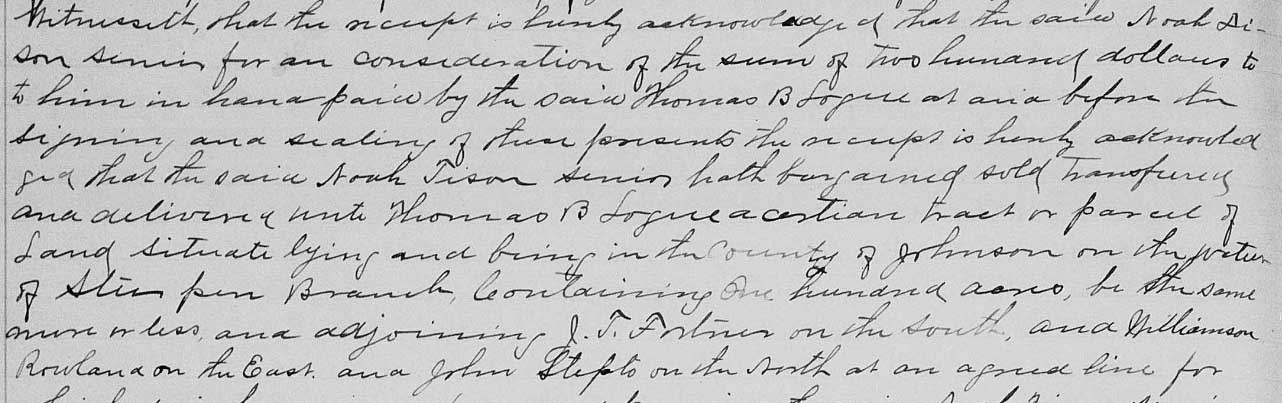 Witnesseth, that the receipt is hereby acknowledged that the said Noah Ti-
son senior for an consideration of the sum of two hundred dollars to
to him in hand paid by the said Thomas B Logue at and before the
signing and sealing of these presents the receipt is hereby acknowled
ged that the said Noah Tison senior hath bargained sold transfered
and delivered unto Thomas B Logue a certian tract or parcel of
Land situate lying and being in the County of Johnson on the water
of Steer pen Branch, Containing One hundred acres, be the same
more or less, and adjoining J. T. Fortner on the south, and Williamson
Rowland on the East. and John Stepto on the North at an agreed line for